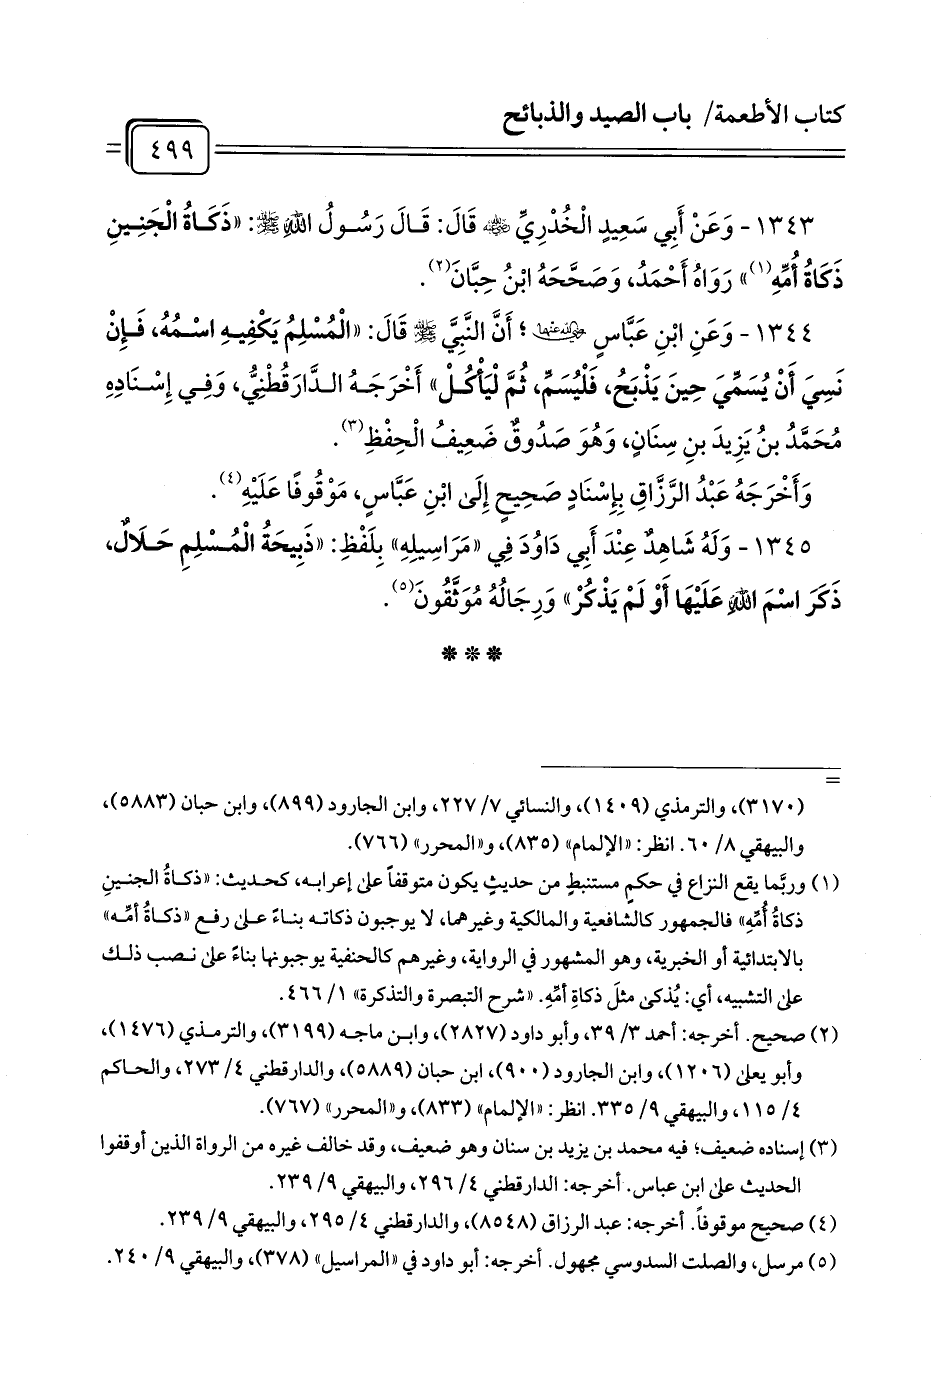 كتاب الأطعمة/ باب الصيد والذبائح
٤٩٩
١٣٤٣ - وَعَنْ أَبِي سَعِيدٍ الْخُدْرِيِّ ﵁ قَالَ: قَالَ رَسُولُ اللهِ ﷺ: «ذَكَاةُ الْجَنِينِ
ذَكَاةُ أُمِّهِ(١)» رَوَاهُ أَحْمَدُ، وَصَحَّحَهُ ابْنُ حِبَّانَ(٢).
١٣٤٤ - وَعَنِ ابْنِ عَبَّاسٍ ﵄؛ أَنَّ النَّبِيَّ ﷺ قَالَ: «الْمُسْلِمُ يَكْفِيهِ اسْمُهُ، فَإِنْ
نَسِيَ أَنْ يُسَمِّيَ حِينَ يَذْبَحُ، فَلْيُسَمِّ، ثُمَّ لْيَأْكُلْ» أَخْرَجَهُ الدَّارَقُطْنِيُّ، وَفِي إِسْنَادِهِ
مُحَمَّدُ بنُ يَزِيدَ بنِ سِنَانٍ، وَهُوَ صَدُوقٌ ضَعِيفُ الْحِفْظِ(٣).
وَأَخْرَجَهُ عَبْدُ الرَّزَّاقِ بِإِسْنَادٍ صَحِيحٍ إِلَى ابْنِ عَبَّاسٍ، مَوْقُوفًا عَلَيْهِ(٤).
١٣٤٥ - وَلَهُ شَاهِدٌ عِنْدَ أَبِي دَاوُدَ فِي «مَرَاسِيلِهِ» بِلَفْظِ: «ذَبِيحَةُ الْمُسْلِمِ حَلَالٌ،
ذَكَرَ اسْمَ اللهِ عَلَيْهَا أَوْ لَمْ يَذْكُرْ» وَرِجَالُهُ مُوَثَّقُونَ(٥).
***
=
(٣١٧٠)، والترمذي (١٤٠٩)، والنسائي ٧/ ٢٢٧، وابن الجارود (٨٩٩)، وابن حبان (٥٨٨٣)،
والبيهقي ٨/ ٦٠. انظر: «الإلمام» (٨٣٥)، و«المحرر» (٧٦٦).
(١) وربَّما يقع النزاع في حكمٍ مستنبطٍ من حديثٍ يكون متوقفاً على إعرابه، كحديث: «ذكاةُ الجنينِ
ذكاةُ أُمِّهِ» فالجمهور كالشافعية والمالكية وغيرهما، لا يوجبون ذكاته بناءً على رفع «ذكاةُ أمِّه»
بالابتدائية أو الخبرية، وهو المشهور في الرواية، وغيرهم كالحنفية يوجبونها بناءً على نصب ذلك
على التشبيه، أي: يُذكى مثلَ ذكاةِ أمِّهِ. «شرح التبصرة والتذكرة» ١/ ٤٦٦.
(٢) صحيح. أخرجه: أحمد ٣/ ٣٩، وأبو داود (٢٨٢٧)، وابن ماجه (٣١٩٩)، والترمذي (١٤٧٦)،
وأبو يعلى (١٢٠٦)، وابن الجارود (٩٠٠)، ابن حبان (٥٨٨٩)، والدارقطني ٤/ ٢٧٣، والحاكم
٤/ ١١٥، والبيهقي ٩/ ٣٣٥. انظر: «الإلمام» (٨٣٣)، و«المحرر» (٧٦٧).
(٣) إسناده ضعيف؛ فيه محمد بن يزيد بن سنان وهو ضعيف، وقد خالف غيره من الرواة الذين أوقفوا
الحديث على ابن عباس. أخرجه: الدارقطني ٤/ ٢٩٦، والبيهقي ٩/ ٢٣٩.
(٤) صحيح موقوفاً. أخرجه: عبد الرزاق (٨٥٤٨)، والدارقطني ٤/ ٢٩٥، والبيهقي ٩/ ٢٣٩.
(٥) مرسل، والصلت السدوسي مجهول. أخرجه: أبو داود في «المراسيل» (٣٧٨)، والبيهقي ٩/ ٢٤٠.